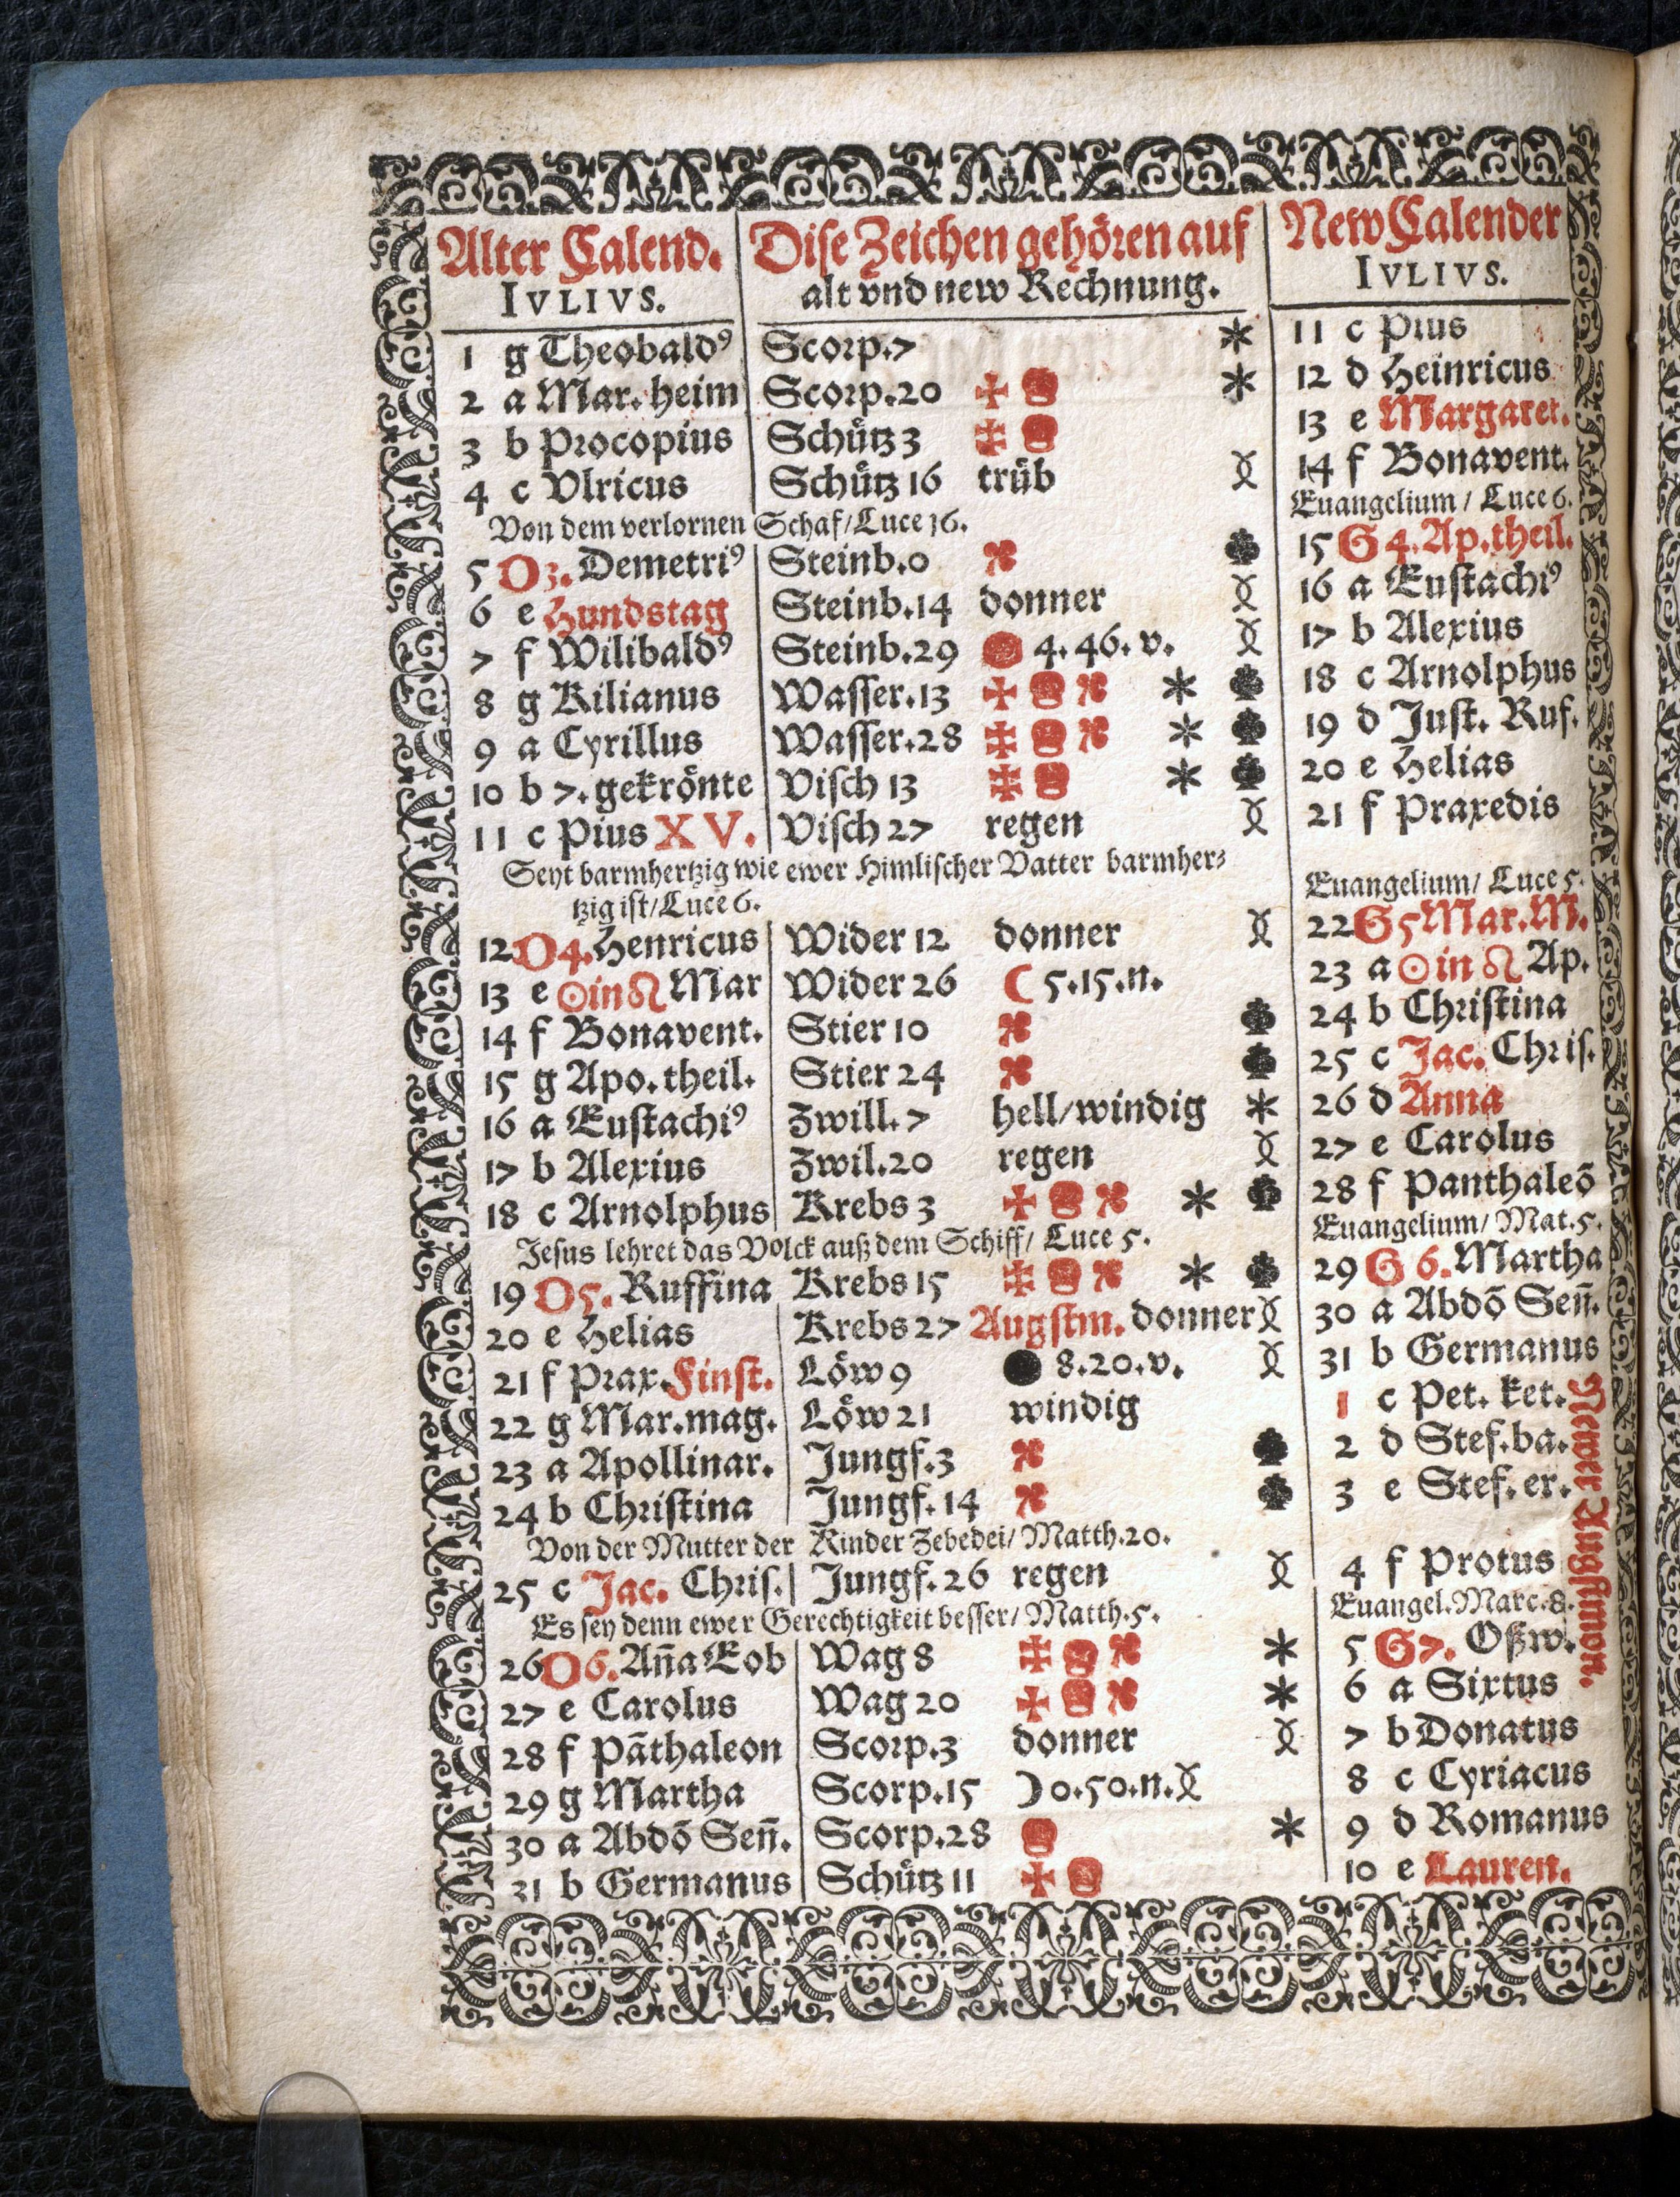 Alter Calend. Dise Zeichen gehören auf New Calender
IVLIVS. alt vnd new Rechnung. IVLIVS.
1 g Theobaldꝰ Scorp.7 11 c Pius
2 a Mar. heim Scorp.20 12 d Heinricus
3 b Procopius Schütz 3 13 e Margaret.
4 c Vlricus Schütz 16 trüb 14 f Bonavent.
Von dem verlornen Schaf/Luce 16. Euangelium / Luce 6.
5 O3. Demetriꝰ Steinb.0 15 G 4. Ap.theil.
6 e Hundstag Steinb.14 donner 16 a Eustachiꝰ
7 f Wilibaldꝰ Steinb.29 4. 46. v. 17 b Alexius
8 g Kilianus Wasser.13 18 c Arnolphus
9 a Cyrillus Wasser.28 19 d Just. Ruf.
10 b 7. gekrönte Visch 13 20 e Helias
11 c Pius XV. Visch 27 regen 21 f Praxedis
Seyt barmhertzig wie ewer Himlischer Vatter barmher⸗
tzig ist/Luce 6. Euangelium/ Luce 5.
12 O4. Henricus Wider 12 donner 22 G5 Mar. M.
13 e ☉ in ♌ Mar Wider 26 ☾ 5.15.n. 23 a ☉ in ♌ Ap.
14 f Bonavent. Stier 10 24 b Christina
15 g Apo. theil. Stier 24 25 c Jac. Chris.
16 a Eustachiꝰ Zwill. 7 hell/windig 26 d Anna
17 b Alexius Zwil.20 regen 27 e Carolus
18 c Arnolphus Krebs 3 28 f Panthaleō
Jesus lehret das Volck auß dem Schiff/ Luce 5. Euangelium/ Mat. 5.
19 O5. Ruffina Krebs 15 29 G 6. Martha
20 e Helias Krebs 27 Augstm. donner 30 a Abdō Señ.
21 f Prax. Finst. Löw 9 8.20.v. 31 b Germanus
22 g Mar.mag. Löw 21 windig 1 c Pet. ket.
23 a Apollinar. Jungf.3 2 d Stef.ba.
24 b Christina Jungf. 14 3 e Stef. er.
Von der Mutter der Kinder Zebedei/ Matth.20.
25 c Jac. Chris. Jungf. 26 regen 4 f Protus
Es sey denn ewer Gerechtigkeit besser/ Matth.5. Euangel. Marc.8.
26 O6. Aña Eob Wag 8 5 G7. Oßw.
27 e Carolus Wag 20 6 a Sixtus
28 f Pāthaleon Scorp.3 donner 7 b Donatus
29 g Martha Scorp.15 ☽ 0.50.n. 8 c Cyriacus
30 a Abdō Señ. Scorp.28 9 d Romanus
31 b Germanus Schütz 11 10 e Lauren.
Newer Augstmon.